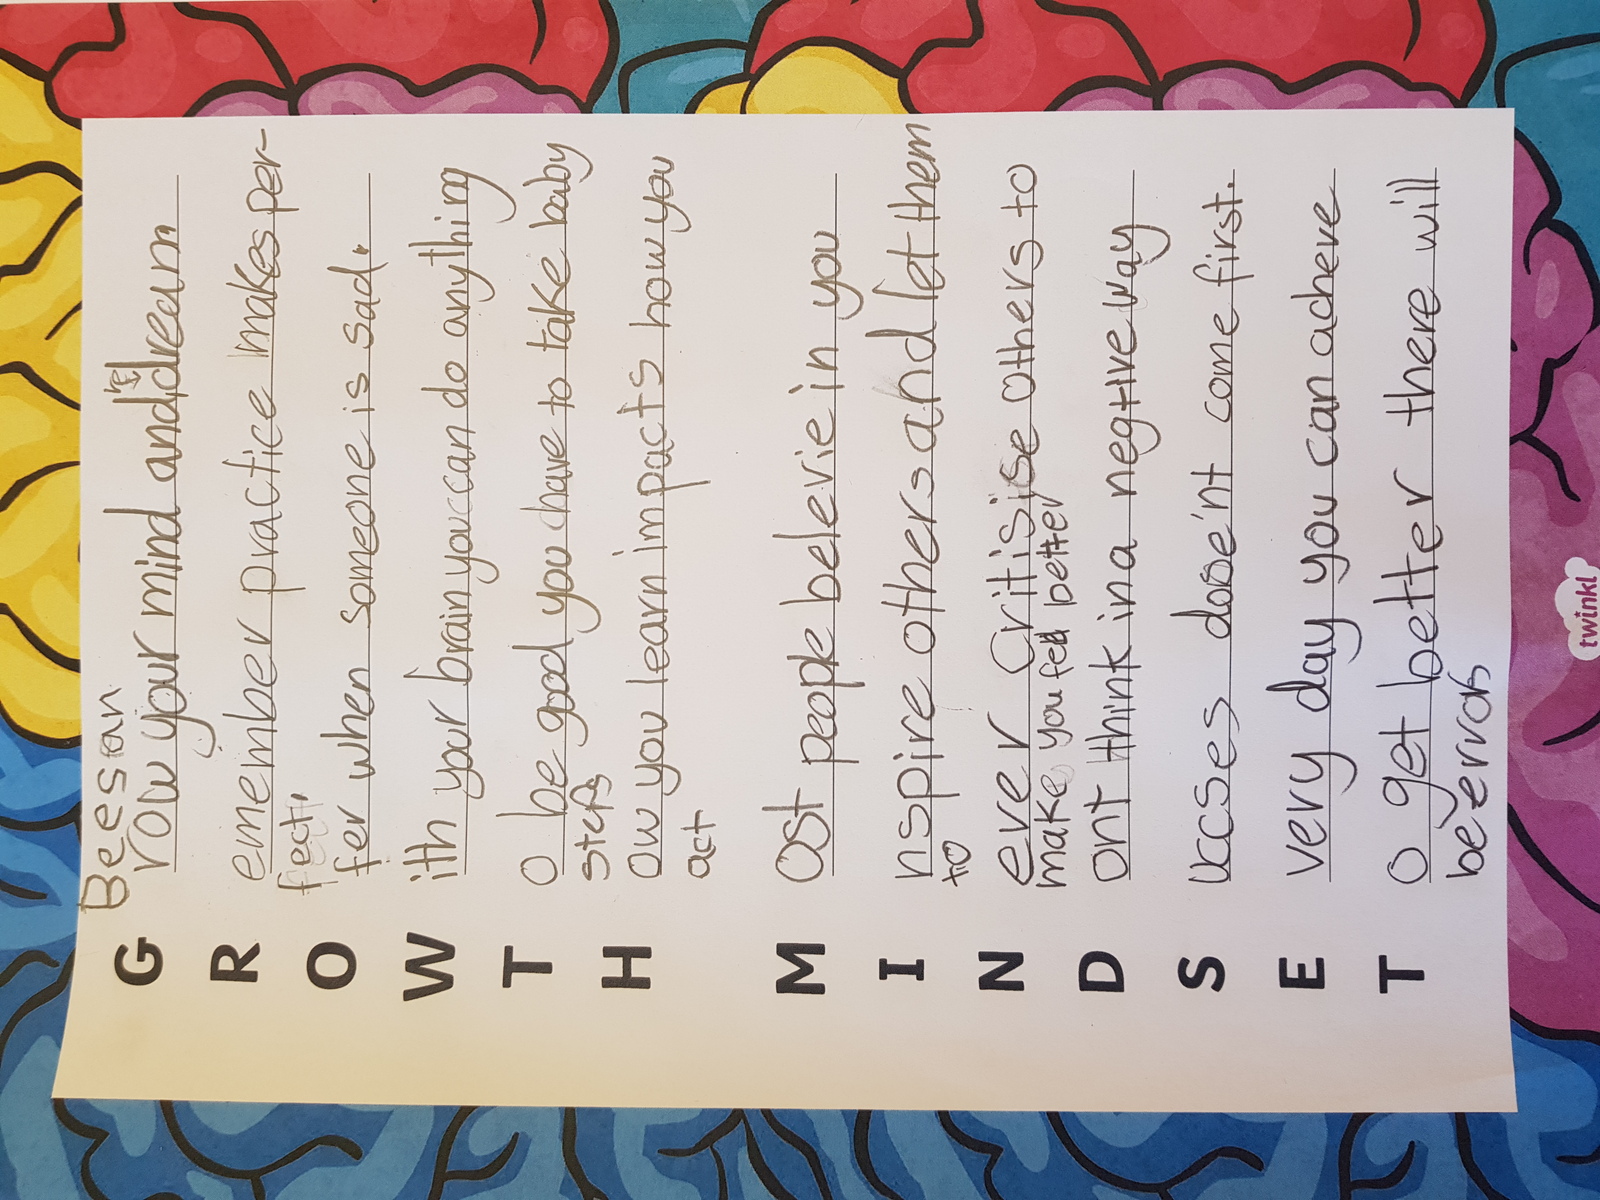 Beesan
G row your mind and it'll dream
R emember practice makes per-
fect.
O fer when someone is sad.
W ith your brain you can do anything
T o be good you have to take baby
steps
H ow you learn impacts how you
act
M ost people belevie in you
I nspire others and let them
to
N ever Critisise others to
make you fell better
D ont think in a negtive way
S ucses dose'nt come first.
E very day you can acheve
T o get better there will
be errors
twinkl